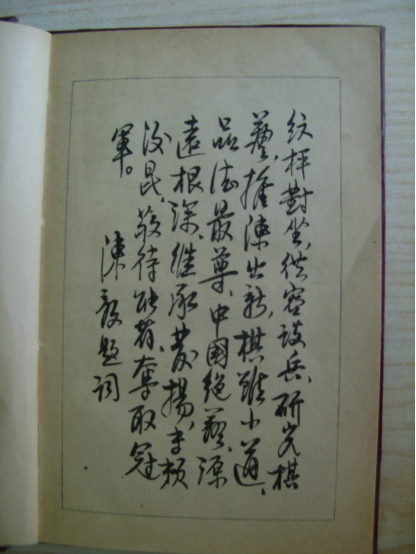 紋枰對坐，從容談兵，研究棋
藝，推陳出新，棋雖小道，
品德最尊，中國絕藝，源
遠根深，繼承發揚，專賴
後昆，敬待能者，奪取冠
軍。
陳毅題詞